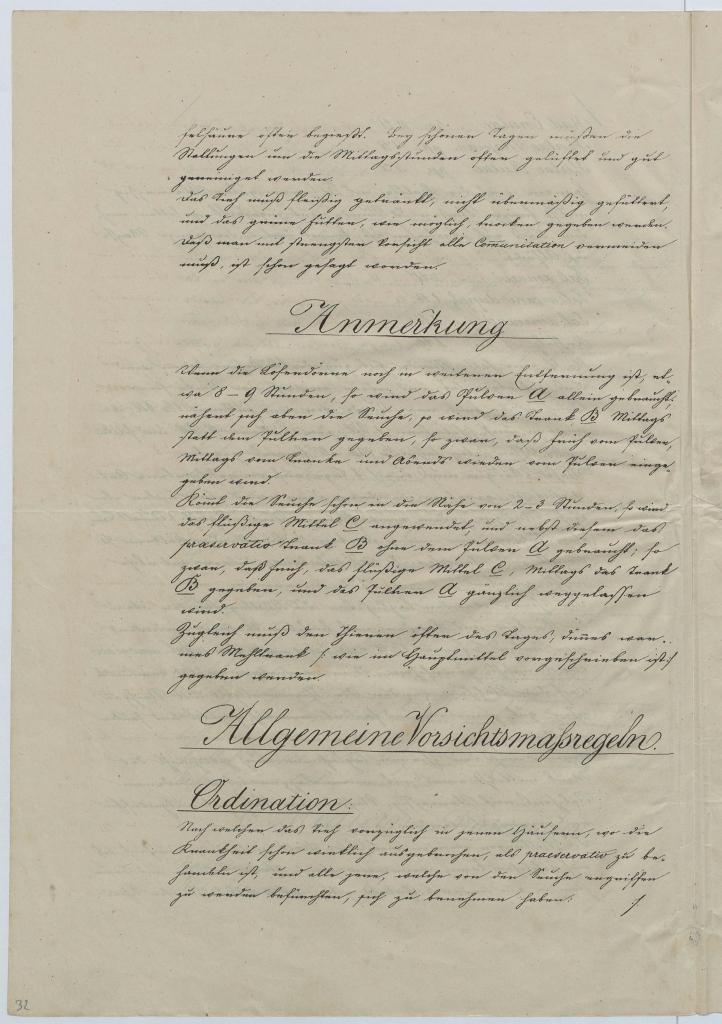 felsäure öfter begießt. Bey schönen Tagen müßen die
Stallungen um die Mittagsstunden öfter gelüftet und gut
gereiniget werden.
Das Vieh muß fleißig getränkt, nicht übermäßig gefüttert,
und das grüne Futter, wie möglich, trocken gegeben werden.
Daß man mit strengster Vorsicht alle Comunication vermeiden
muß, ist schon gesagt worden.
Anmerkung
Wenn die Löserdörre noch in weiterer Entfernung ist, et-
wa 8 – 9 Stunden, so wird das Pulver A allein gebraucht;
nähert sich aber die Seuche, so wird das Trank B Mittags
statt dem Pulver gegeben, so zwar, daß früh vom Pulver,
Mittags vom Tranke und Abends wieder vom Pulver einge-
geben wird.
Kömt die Seuche schon in die Nähe von 2–3 Stunden, so wird
das flüßige Mittel C angewendet, und nebst diesem das
praeservativ Trank B ohne dem Pulver A gebraucht; so
zwar, daß früh, das flüßige Mittel C, Mittags das Trank
B gegeben, und das Pulver A gänzlich weggelassen
wird.
Zugleich muß den Thieren öfter des Tages, dünes war-
mes Mehltrank /: wie im Hauptmittel vorgeschrieben ist :/
gegeben werden.
Allgemeine Vorsichtsmaßregeln.
Ordination:
Nach welcher das Vieh vorzüglich in jenen Häusern, wo die
Krankheit schon wirklich ausgebrochen, als praeservativ zu be-
handeln ist, und alle jene, welche von der Seuche ergriffen
zu werden befürchten, sich zu benehmen haben. ./.
32